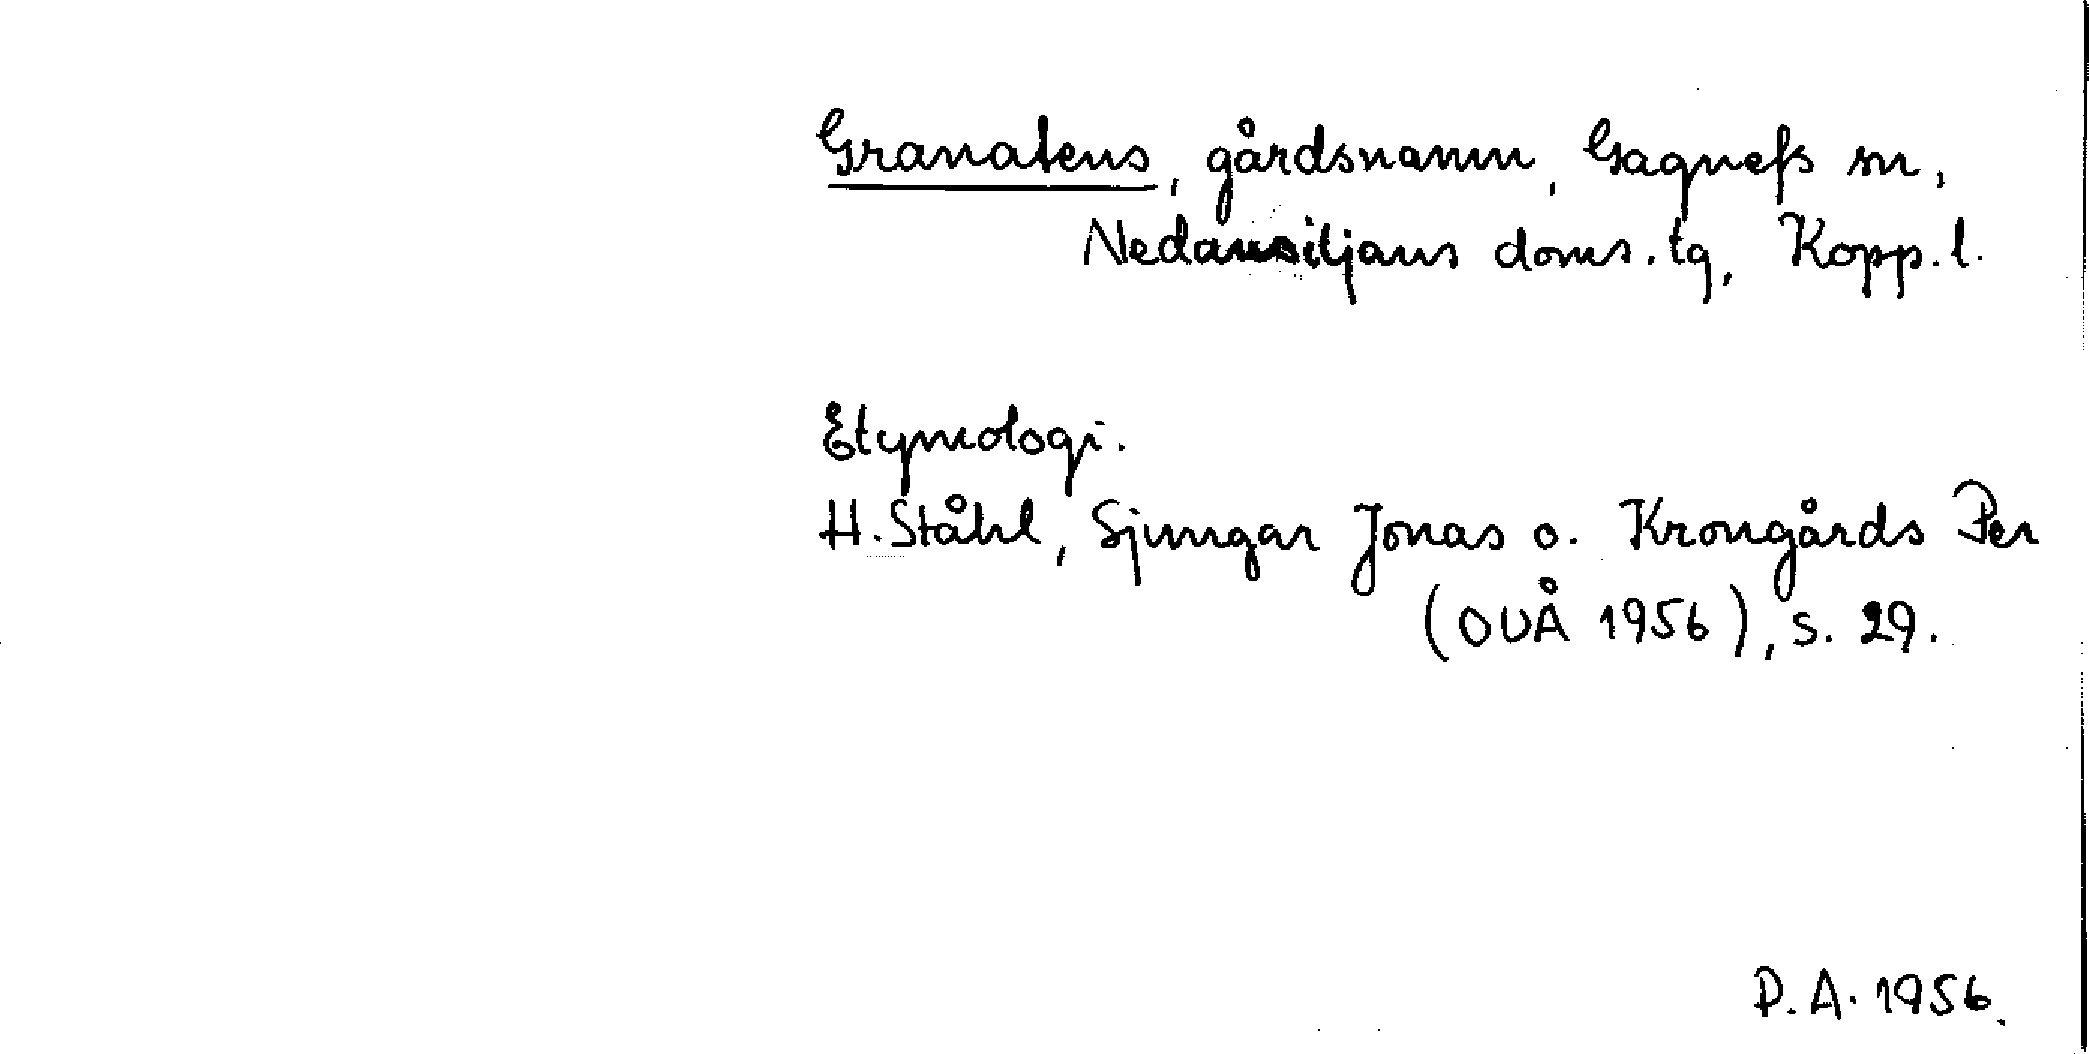 Granatens, gårdsnamn, Gagnefs sn,
Nedansiljans doms.tg, Kopp.l.
Etymologi.
H.Ståhl, Sjungar Jonas o. Krongårds Per
(OUÅ 1956), s. 29.
P.A. 1956.